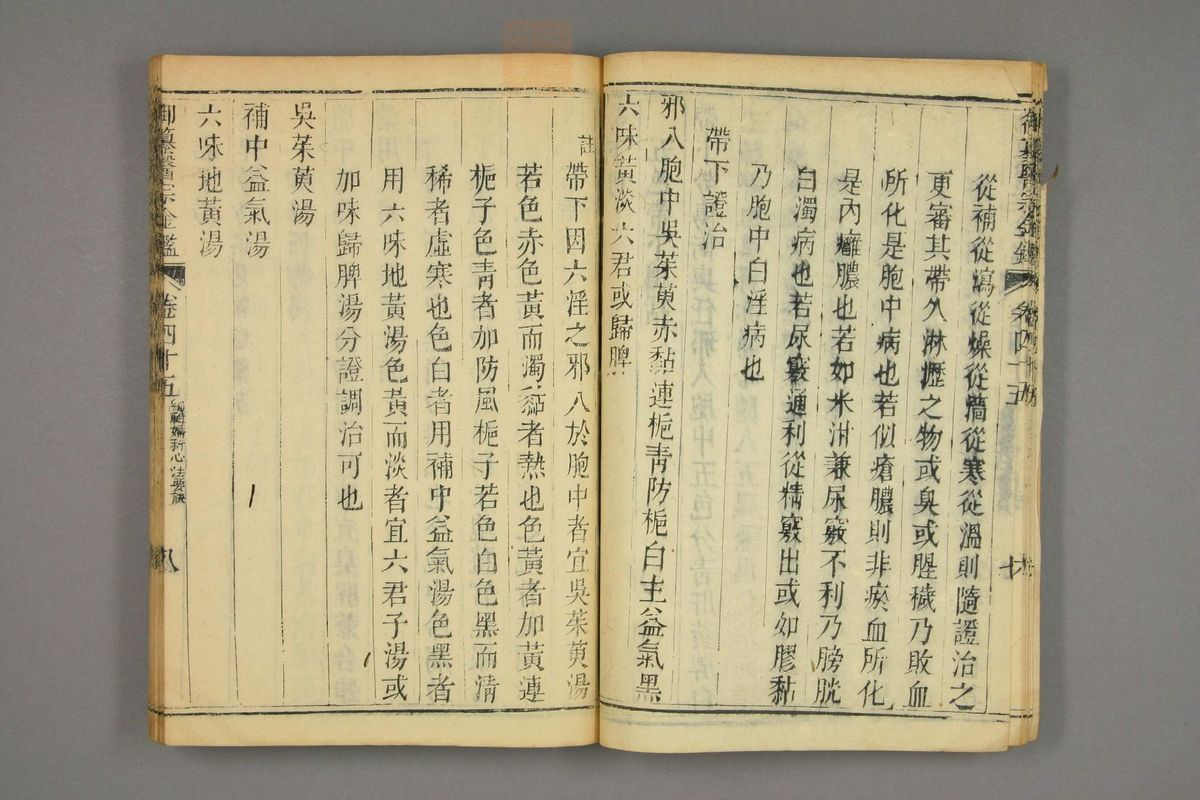 從補從瀉從燥從墻從寒從溫則隨證治之
更審其帶久淋瀝之物或臭或腥穢乃敗血
所化是胞中病也若似瘡膿則非瘀血所化
是內癰膿也若如米泔兼尿竅不利乃膀胱
白濁病也若尿竅通利從精竅出或如膠黏
乃胞中白淫病也
帶下證治
邪入胞中吳茱萸赤黏連梔青防梔白主益氣黑
六味黃淡六君或歸脾
註帶下因六淫之邪入於胞中者宜吳茱萸湯
若色赤色黃而濁黏者熱也色黃者加黃連
梔子色青者加防風梔子若色白色黑而清
稀者虛寒也色白者用補中益氣湯色黑者
用六味地黃湯色黃而淡者宜六君子湯或
加味歸脾湯分證調治可也
吳茱萸湯
補中益氣湯
六味地黃湯
御纂醫宗金鑑 卷四十五 編輯婦科心法要訣 八